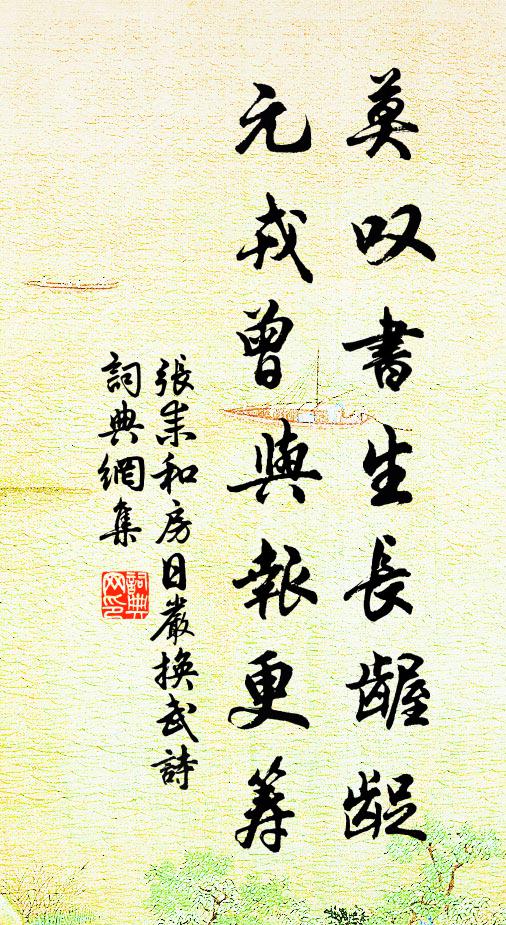 莫叹書生長齷齪
元戎曾與報更筹
張耒和房日嚴換武詩
詞典網集
詞典网印